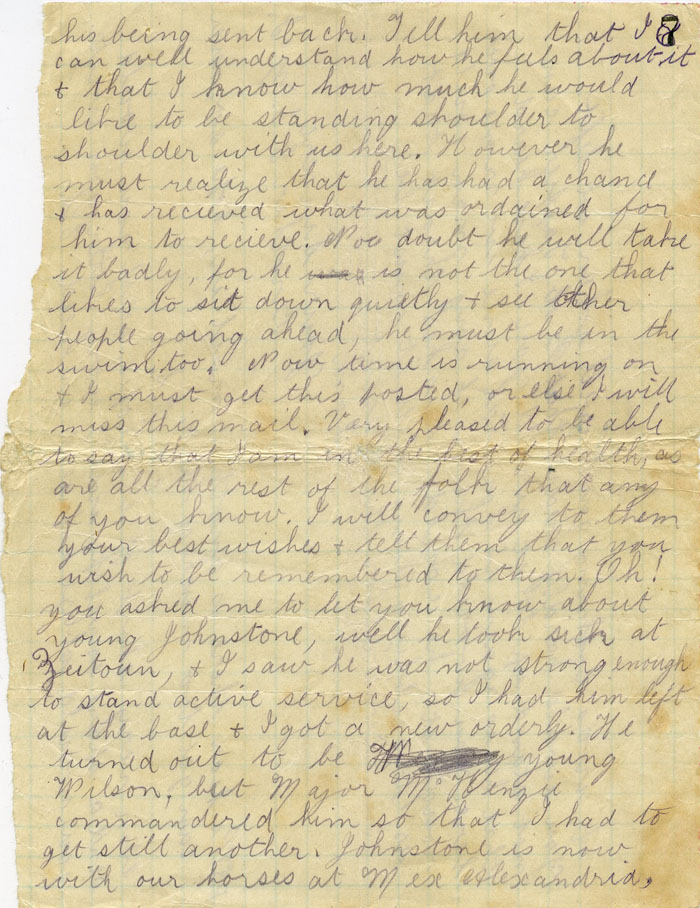 8
his being sent back. Tell him that I
can well understand how he feels about it
& that I know how much he would
like to be standing shoulder to
shoulder with us here. However he
must realize that he has had a chance
& has recieved what was ordained for
him to recieve. Noo doubt he will take
it badly, for he is not the one that
likes to sit down quietly & see other
people going ahead, he must be in the
swim too. Now time is running on
& I must get this posted, or else I will
miss this mail. Very pleased to be able
to say that I am in the best of health, as
are all the rest of the folk that any
of you know. I will convey to them
your best wishes & tell them that you
wish to be remembered to them. Oh!
you asked me to let you know about
young Johnstone, well he took sick at
Zeitoun, & I saw he was not strong enough
to stand active service, so I had him left
at the base & I got a new orderly. He
turned out to be young
Wilson, but Major McKenzie
commandered him so that I had to
get still another. Johnstone is now
with our horses at Mex Alexandria.